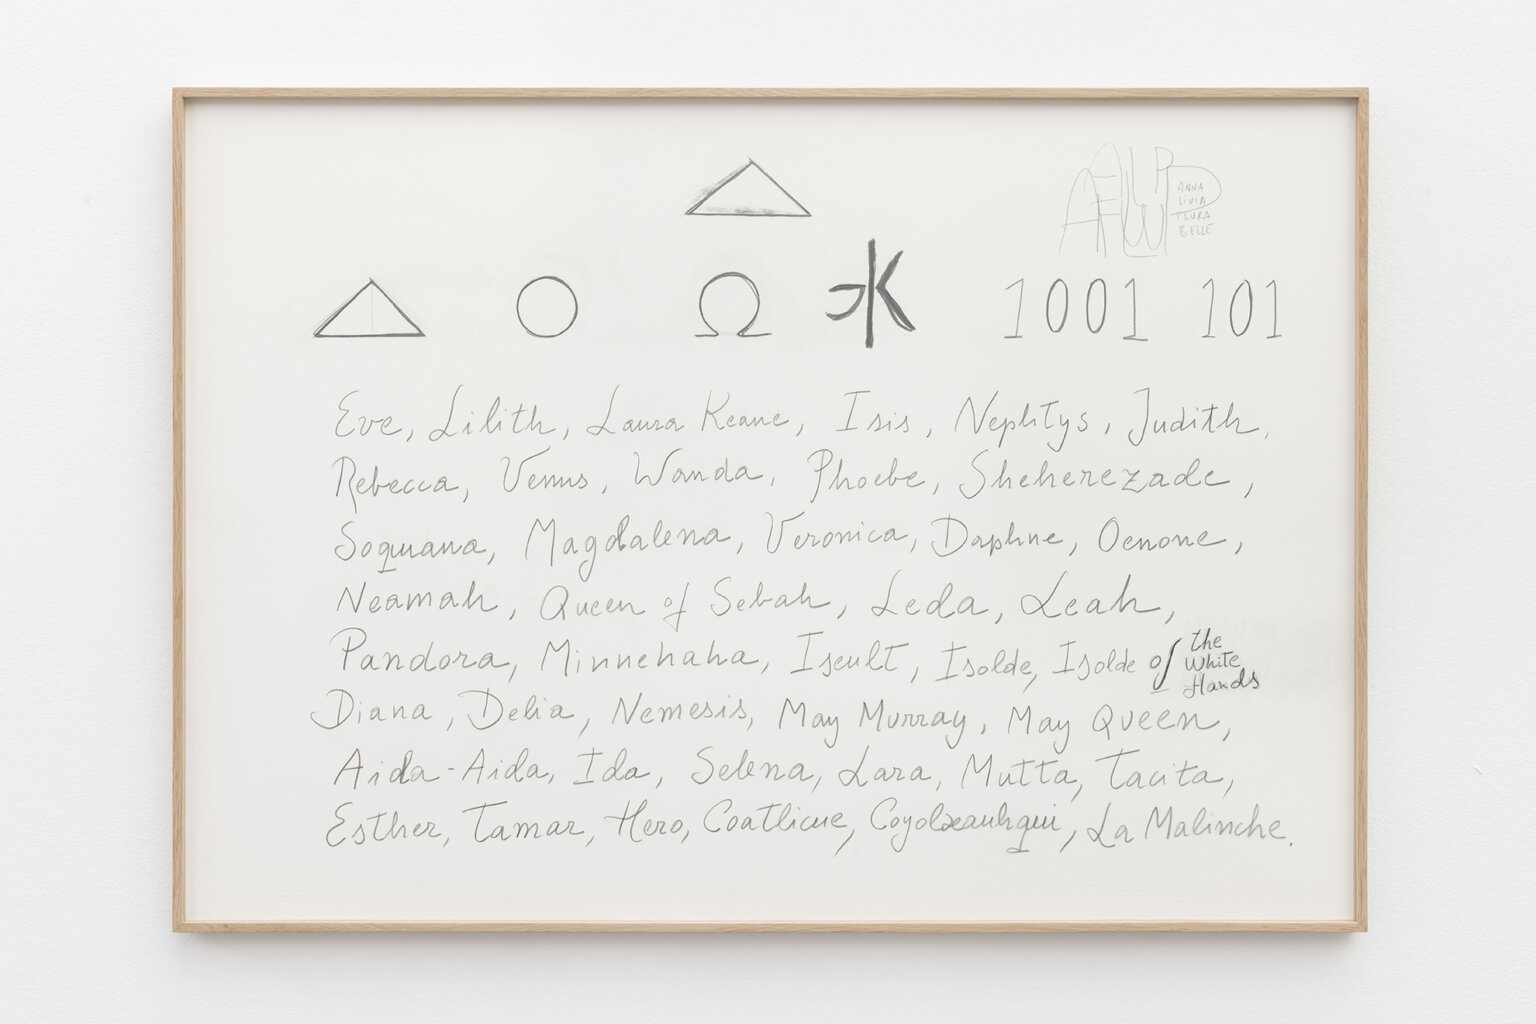 ALP
ANNA
LIVIA
PLURA
BELLE
△
△ ○ Ω 水 1001 101
Eve, Lilith, Laura Keane, Isis, Nephtys, Judith,
Rebecca, Venus, Wanda, Phoebe, Sheherezade,
Soquana, Magdalena, Veronica, Daphne, Oenone,
Neamah, Queen of Sebah, Leda, Leah,
Pandora, Minnehaha, Iseult, Isolde, Isolde of the White Hands
Diana, Delia, Nemesis, May Murray, May Queen,
Aida-Aida, Ida, Selena, Lara, Mutta, Tacita,
Esther, Tamar, Hero, Coatlicue, Coyolxauhqui, La Malinche.